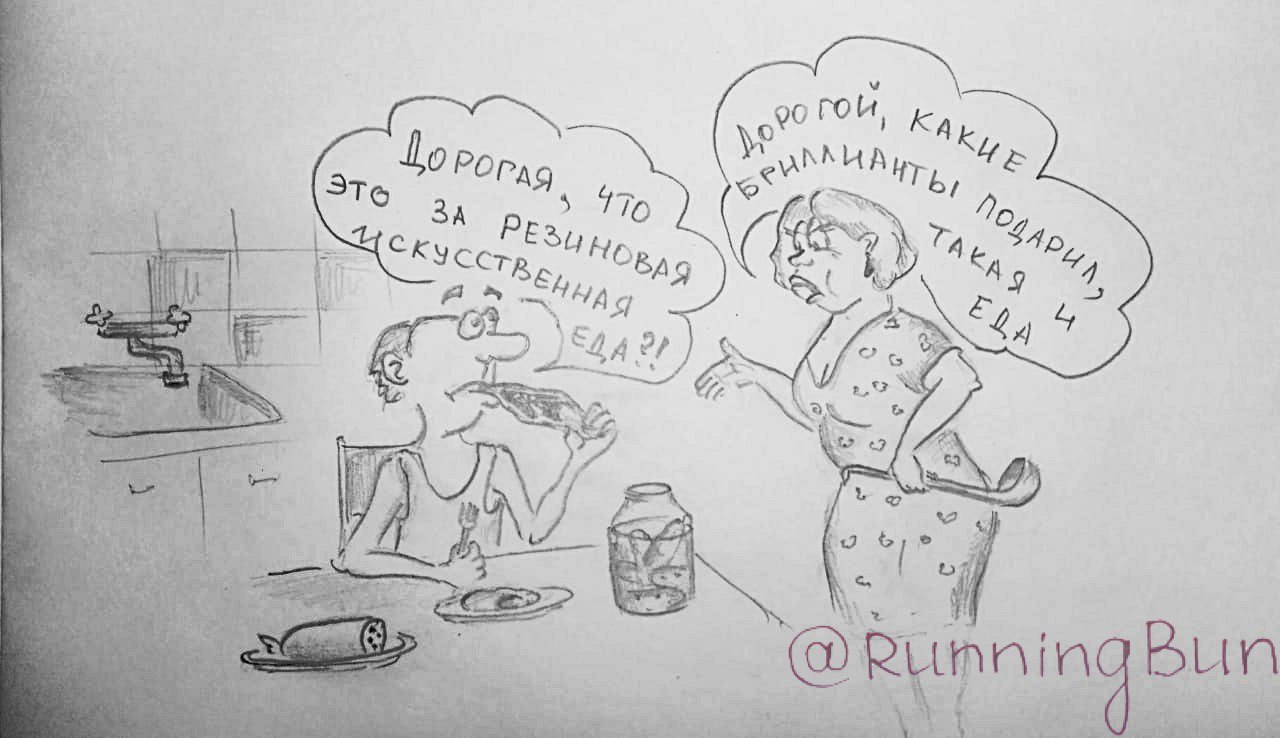 Дорогая, что
это за резиновая
искусственная
еда?!
Дорогой, какие
бриллианты подарил,
такая и
еда
@RunningBun